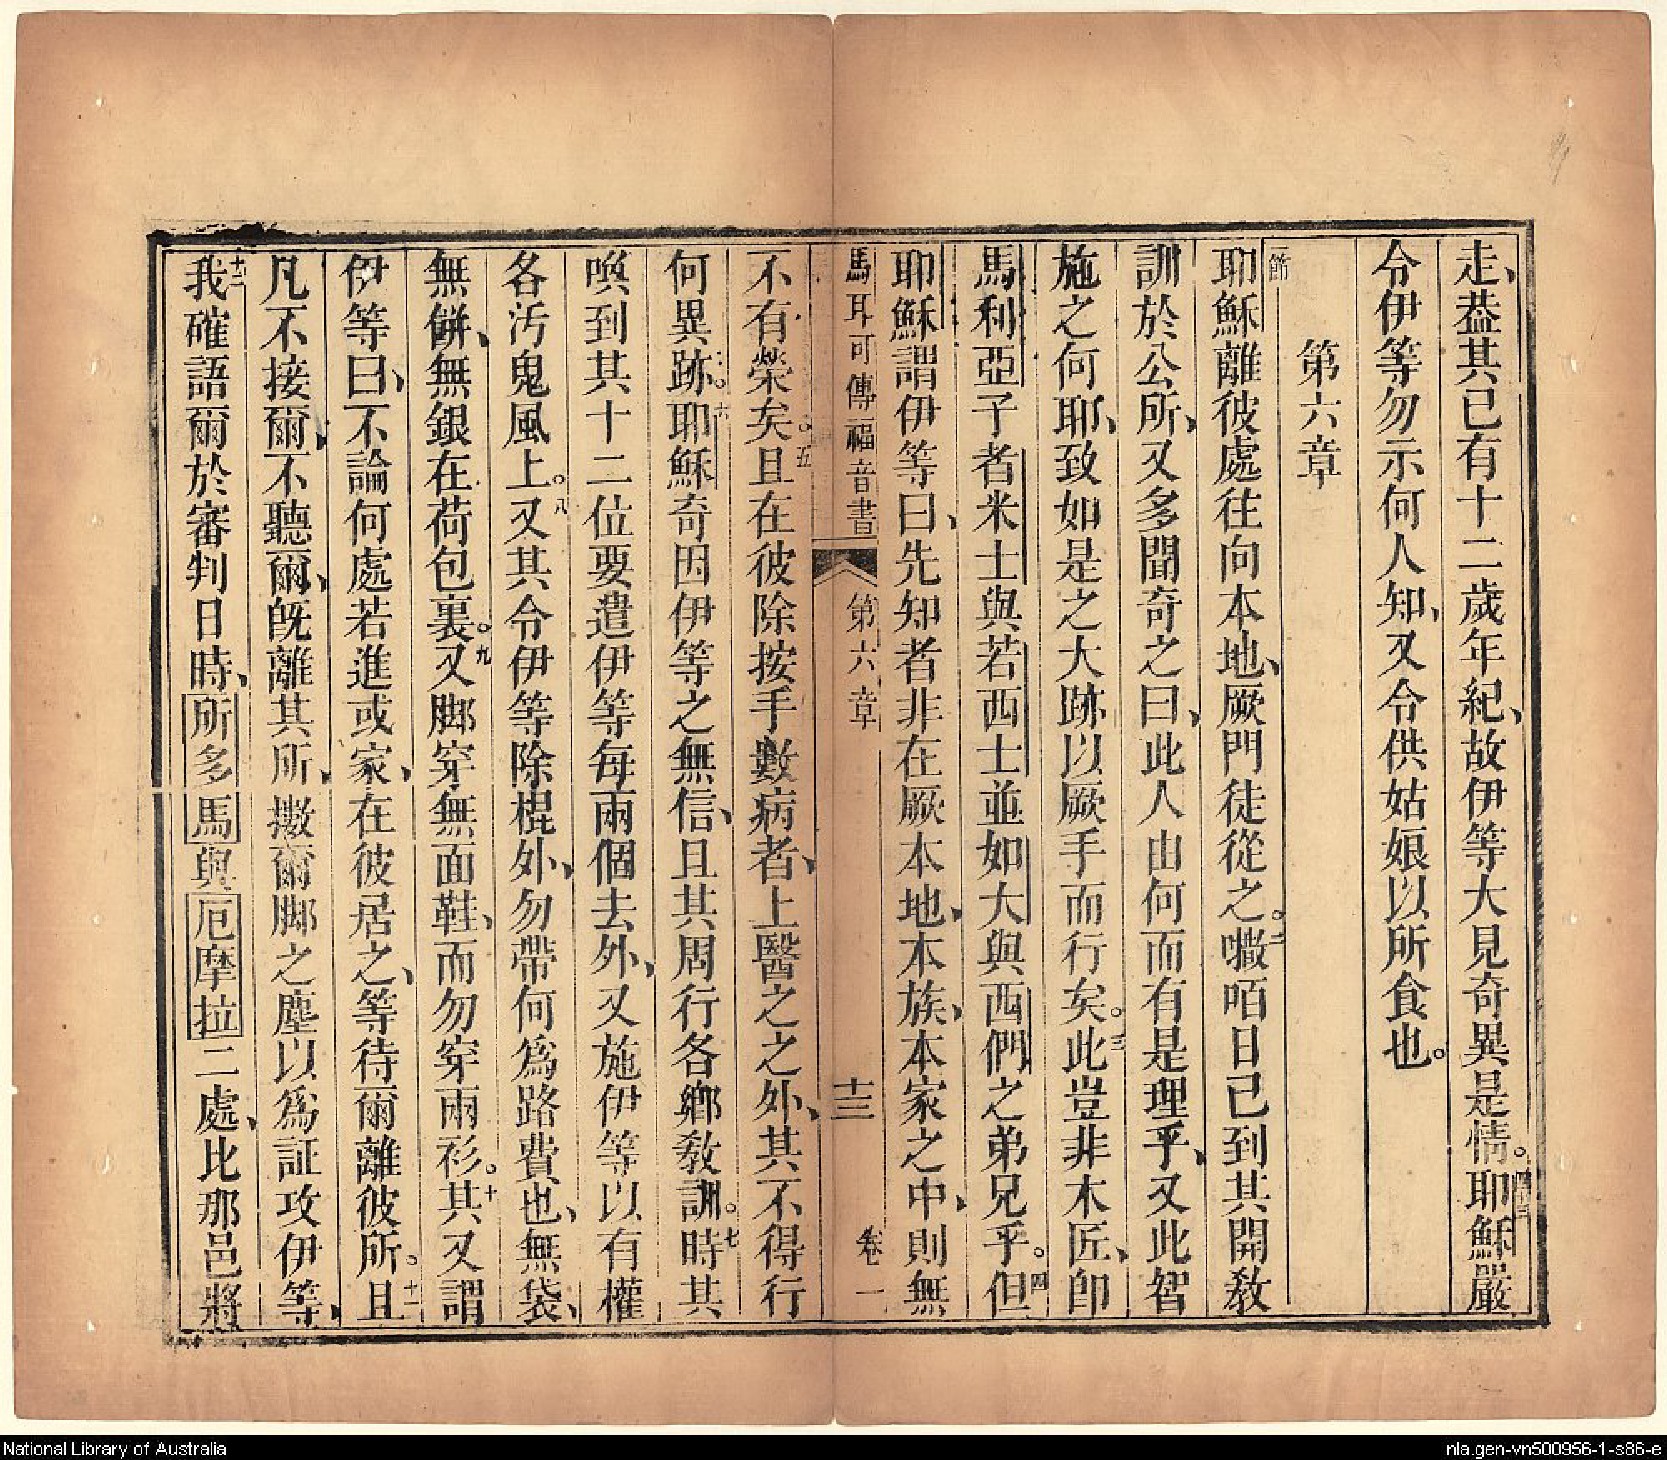 走、蓋其已有十二歲年紀、故伊等大見奇異是情。四十三耶穌嚴
令伊等勿示何人知、又令供姑娘以所食也。
第六章
一節耶穌離彼處徃向本地、厥門徒從之。二㘔咟日已到其開教
訓於公所、又多聞奇之曰、此人由何而有是理乎、又此智
施之何耶、致如是之大跡以厥手而行矣。三此豈非木匠、卽
馬利亞子者米士與若西士並如大與西們之弟兄乎。四但
耶穌謂伊等曰、先知者非在厥本地、本族、本家之中、則無
馬耳可傳福音書 第六章 十三 卷一
不有榮矣。五且在彼除按手數病者、上醫之之外、其不得行
何異跡。六耶穌奇因伊等之無信、且其周行各鄉教訓。七時其
喚到其十二位要遣伊等每兩個去外、又施伊等以有權
各汚鬼風上。八又其令伊等除棍外、勿帶何爲路費也、無袋、
無餅、無銀在荷包裏。九又脚穿無面鞋、而勿穿兩衫。十其又謂
伊等曰、不論何處若進或家、在彼居之、等待爾離彼所。十一且
凡不接爾、不聽爾、旣離其所、擻爾脚之塵以爲証攻伊等、
十二我確語爾於審判日時、所多馬與厄摩拉二處、比那邑將
National Library of Australia
nla.gen-vn500956-1-s86-e